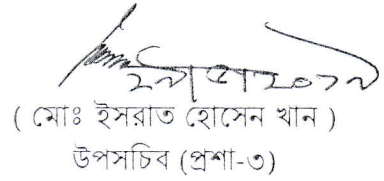 ( মোঃ ইসরাত হোসেন খান )
উপসচিব (প্রশা-৩)